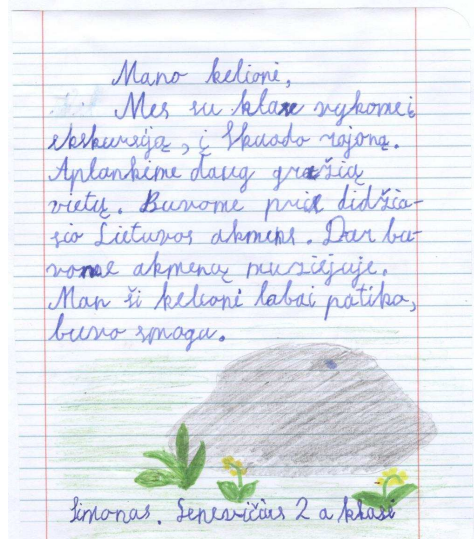 Mano kelionė,
Mes su klase vykome į
ekskursiją, į Skuodo rajoną.
Aplankėme daug gražių
vietų. Buvome prie didžia-
sio Lietuvos akmens. Dar bu-
vome akmenų muziejuje.
Man ši kelionė labai patiko,
buvo smagu.
Simonas. Senevičius 2 a klasė